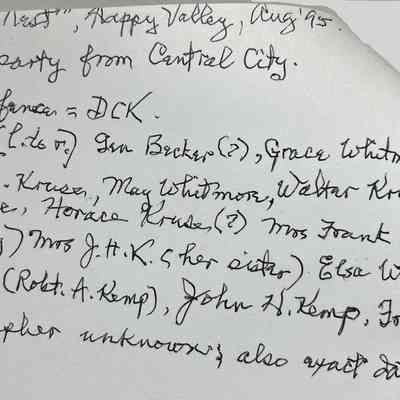 Nest", Happy Valley, Aug '95.
party from Central City.
fence = DCK.
(l. to r.) Gen Becker (?), Grace Whitm
. Kruse, May Whitmore, Walter Kr
e, Horace Kruse (?) Mrs Frank
) Mrs J.H.K. (her sister) Elsa W
(Robt. A. Kemp), John H. Kemp, Fr
pher unknown; also exact da